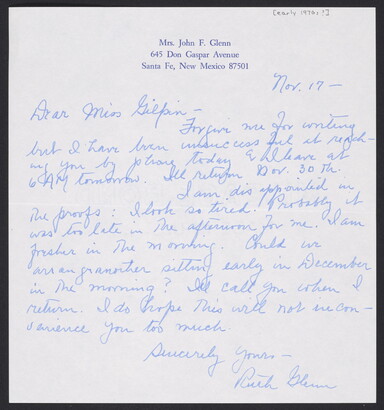 [early 1970s?]
Mrs. John F. Glenn
645 Don Gaspar Avenue
Santa Fe, New Mexico 87501
Nov. 17 —
Dear Miss Gilpin —
Forgive me for writing
but I have been unsuccessful it reach-
ing you by phone today & I leave at
6 AM tomorrow. I'll return Nov. 30th.
I am disappointed in
the proofs: I look so tired. Probably it
was too late in the afternoon for me. I am
fresher in the morning. Could we
arrange another sitting early in December
in the morning? I'll call you when I
return. I do hope this will not incon-
venience you too much.
Sincerely yours —
Ruth Glenn